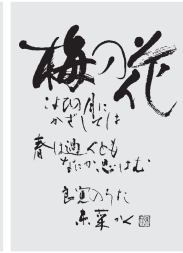 梅の花
こよひの月に
かざしては
春は過くとも
なにか思はむ
良寛のうた
かく